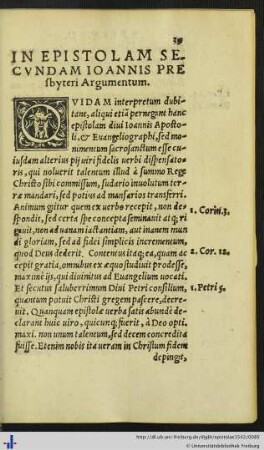 39
IN EPISTOLAM SE-
CVNDAM IOANNIS PRE
sbyteri Argumentum.
QVIDAM interpretum dubi-
tant, aliqui etiã pernegant hanc
epistolam diui Ioannis Aposto-
li, & Euangeliographi, sed mo-
nimentum sacrosanctum esse cu-
iusdam alterius pij uiri fidelis uerbi dispensato-
ris, qui noluerit talentum illud à summo Rege
Christo sibi commissum, sudario inuolutum ter-
ræ mandari, sed potius ad mensarios transferri.
Animum igitur quem ex uerbo recepit, non de-
spondit, sed certa spe concepta seminauit atq; ri- 1. Corin. 3.
gauit, non ad uanam iactantiam, aut inanem mun
di gloriam, sed ad fidei simplicis incrementum,
quod Deus dederit. Contentus itaq; ea, quam ac- 2. Cor. 12.
cepit gratia, omnibus ex æquo studuit prodesse,
maxime ijs, qui diuinitus ad Euangelium uocati.
Et secutus saluberrimum Diui Petri consilium, 1. Petri 5.
quantum potuit Christi gregem pascere, decre-
uit. Quanquam epistolæ uerba satis abundè de-
clarant huic uiro, quicunq; fuerit, à Deo opti.
maxi. non unum talentum, sed decem concredita
fuisse. Etenim nobis ita ueram in Christum fidem
depingit,
http://dl.ub.uni-freiburg.de/diglit/
© Universitätsbibliothek Freiburg